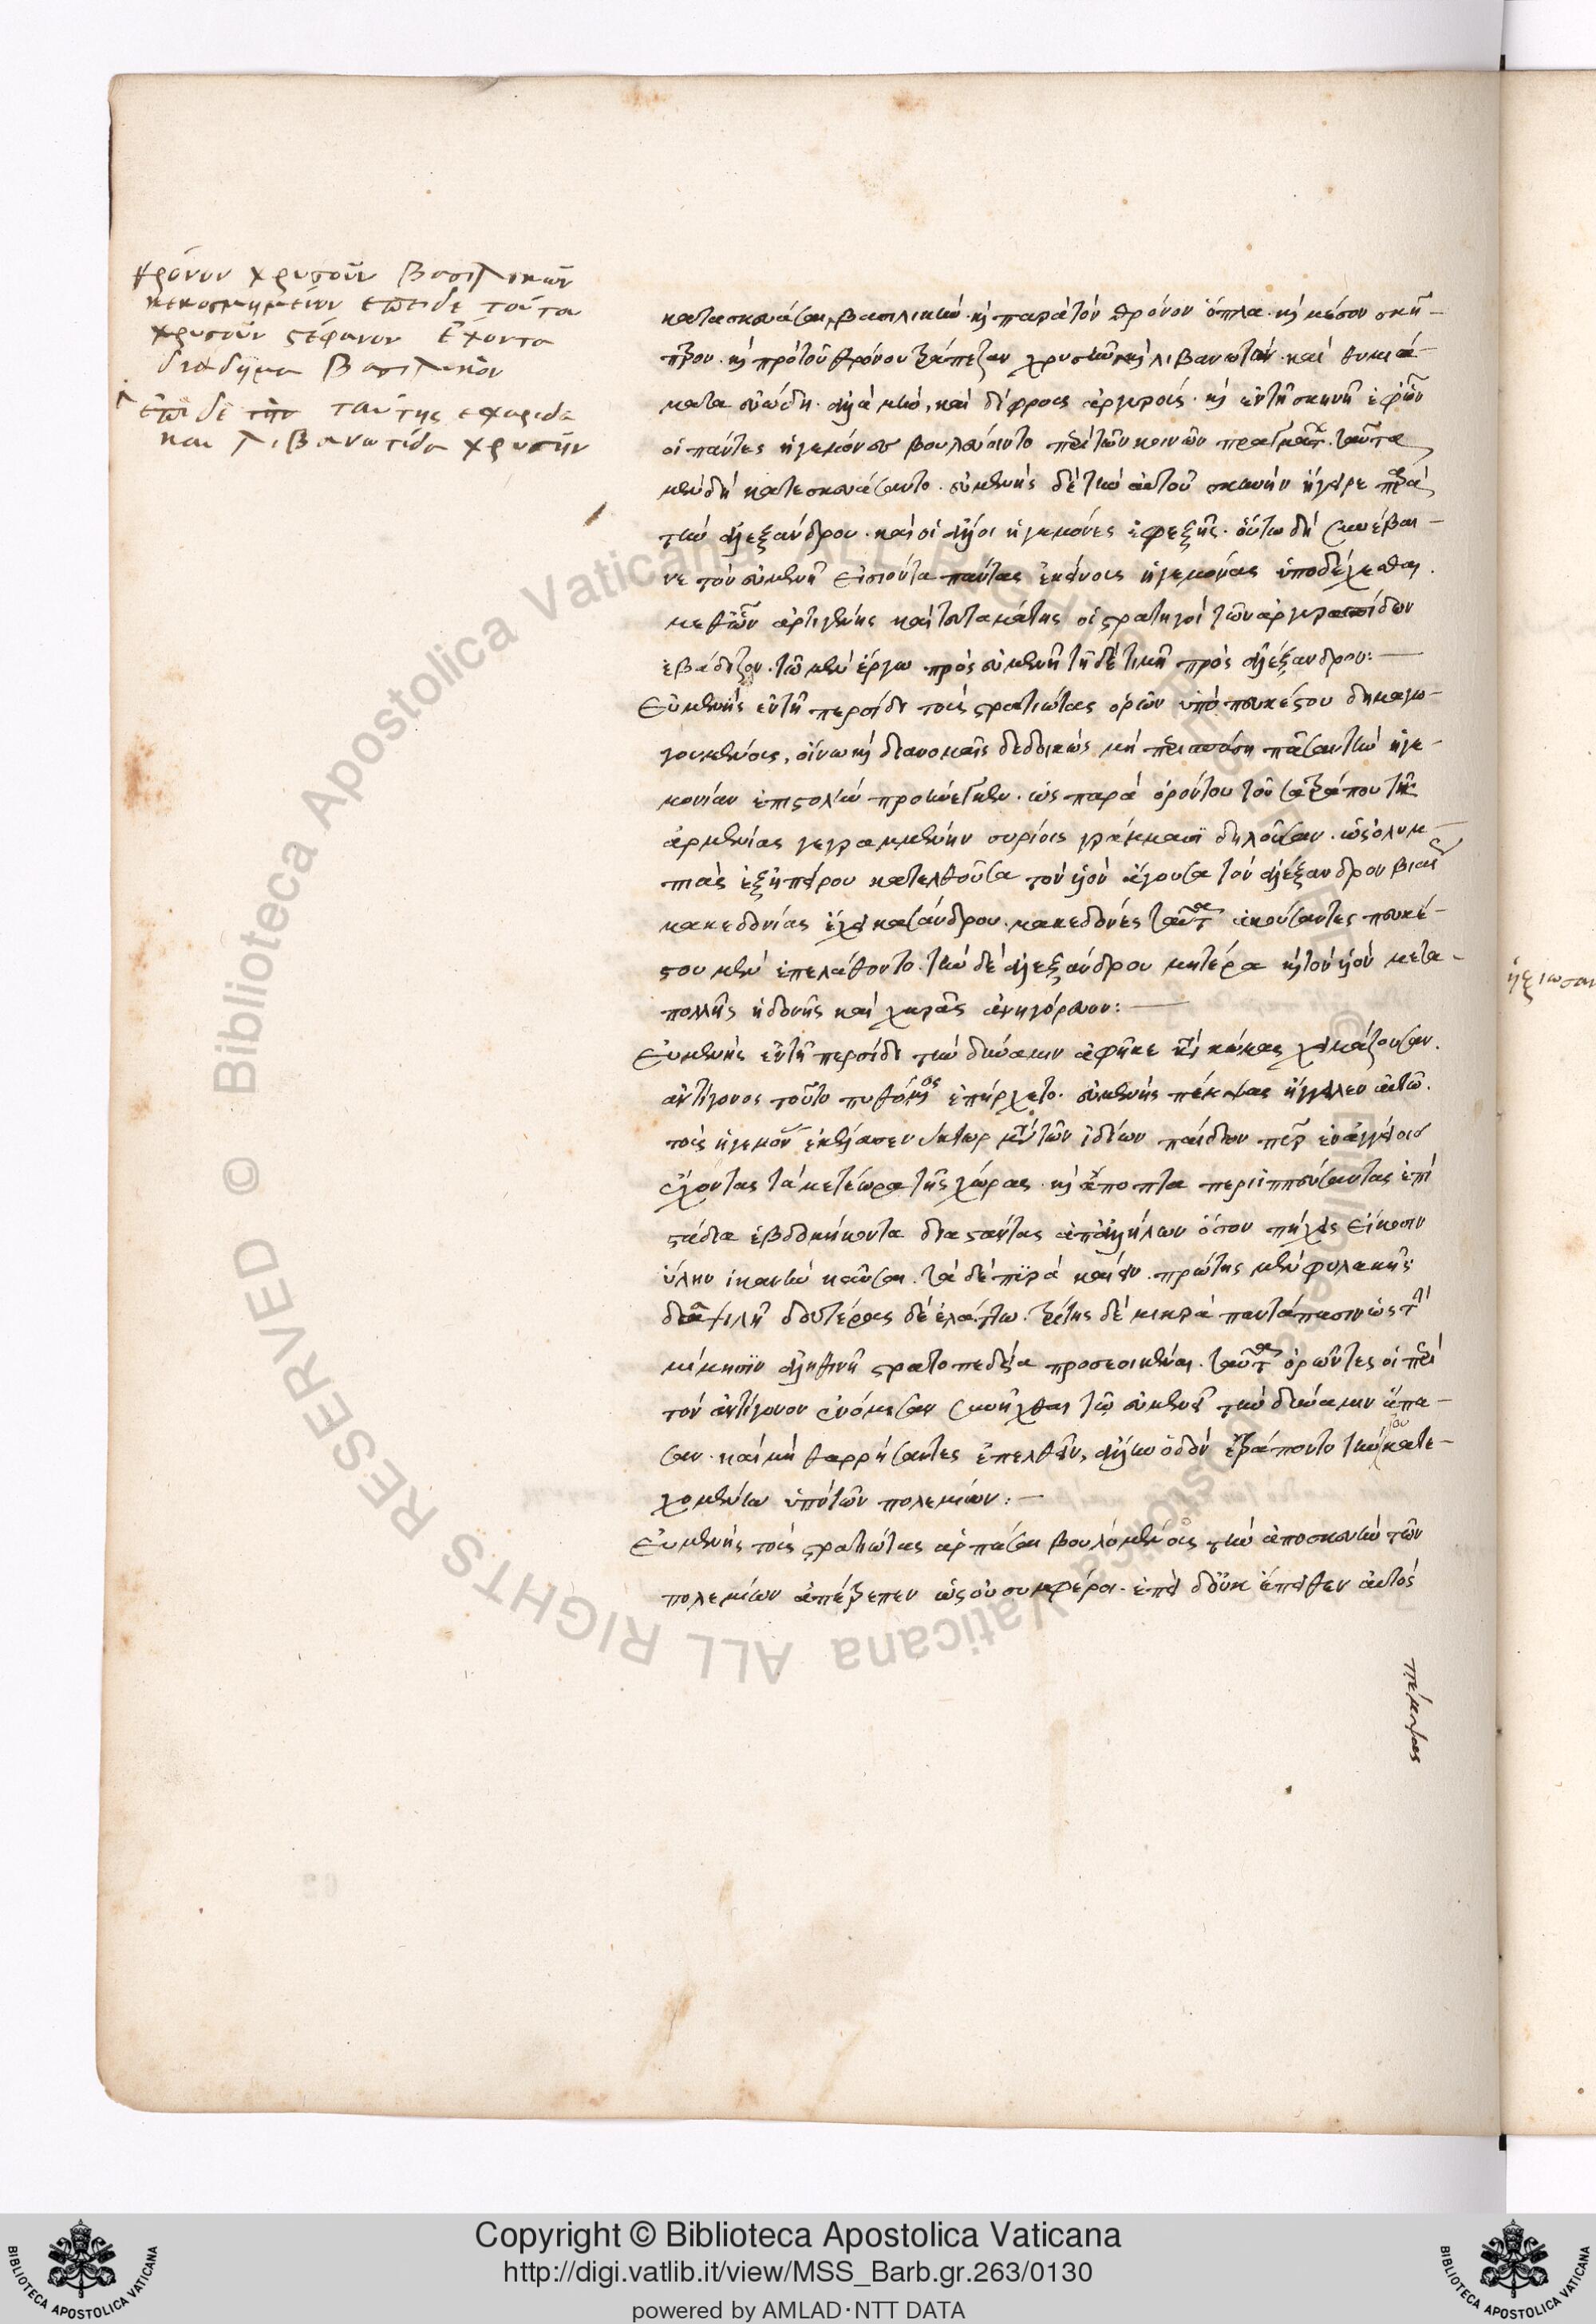 θρόνον χρυσοῦν βασιλικῶν
κεκοσμημένον ἐπειδε τούτω
χρυσοῦν στέφανον ἔχοντα
διάδημα βασιλικὸν
ἐπὶ δὲ τὴν ταύτης ἐσχαρίδα
καὶ λιβανωτίδα χρυσῆν
κατασκευάσαι βασιλικὴν. καὶ παρὰ τὸν θρόνον ὅπλα. καὶ μέσον σκῆ-
πτρον. καὶ πρὸ τοῦ θρόνου τράπεζαν χρυσῆν καὶ λιβανωτὸν. καὶ θυμιά-
ματα εὐώδη. ἀλλὰ μὴν, καὶ δίφρους ἀργυροῖς. καὶ ἐν τῆ σκηνῆ ἐφ' ὧν
οἱ πάντες ἡγεμόνες βουλεύοιντο περὶ τῶν κοινῶν πραγμάτων. ταῦτα
μὲν δὴ κατεσκευάσαντο. εὐμενὴς δὲ τὴν αὐτοῦ σκηνὴν ἤγειρε παρὰ
τὴν ἀλεξάνδρου. καὶ οἱ ἄλλοι ἡγεμόνες ἐφεξῆς. οὕτω δὴ συνέβαι-
νε τὸν εὐμενῆ εἰσιόντα πάντας ἐκείνους ἡγεμόνας ὑποδέχεσθαι.
μεθ' ὧν ἀρτιγένης καὶ τουταμάτης οἱ στρατηγοὶ τῶν ἀργυρασπίδων
ἐβάδιζον. τῶ μὲν ἔργω πρὸς εὐμενῆ τῆ δὲ τιμῆ πρὸς ἀλέξανδρον:—
Εὐμενὴς ἐν τῆ περσίδι τοὺς στρατιώτας ὁρῶν ὑπὸ πευκέστου δημαγω-
γουμένους, οἴνω καὶ διανομαῖς δεδοικὼς μὴ περισπάση πᾶσαν τὴν ἡγε-
μονίαν ἐπιστολὴν προήνεγκεν. ὡς παρὰ ὀρόντου τοῦ σατράπου τῆς
ἀρμενίας γεγραμμένην συρίοις γράμμασϊ δηλοῦσαν. ὡς ὀλυμ-
πιὰς ἐξ ἠπείρου κατελθοῦσα τὸν υἱὸν ἄγουσα τὸν ἀλέξανδρον βίας
μακεδονίας ἔχει κασάνδρου. μακεδόνες ταῦτα ἀκούσαντες πευκέ-
στου μὲν ἐπελάθοντο. τὴν δὲ ἀλεξάνδρου μητέρα καὶ τὸν υἱὸν μετα-
πολλῆς ἡδονῆς καὶ χαρᾶς ἀνηγόρευον:—
Εὐμενὴς ἐν τῆ περσίδι τὴν δύναμιν ἀφῆκε κατὰ κώμας χειμάζουσαν.
ἀντίγονος τοῦτο πυθόμενος ἐπήρχετο. εὐμενὴς πέμψας ἤγγελλεν αὐτῶ.
τοῖς ἡγεμόνι ἐκέλευσεν νύκτωρ μετὰ τῶν ἰδίων παίδων πῦρ ἐν ἀγγείοις
ἔχοντας τὰ μετέωρα τῆς χώρας. καὶ ἄποπτα περιϊππεύσαντας ἐπὶ
στάδια ἑβδομήκοντα διαστάντας ἀπ' ἀλλήλων ὅσον πήχεις εἴκοσιν
ὕλην ἱκανὴν καῦσαι. τὰ δὲ πῦρὰ καίειν. πρώτης μὲν φυλακῆς
δαψιλῆ δευτέρας δὲ ἐλάττω. τρίτης δὲ μικρὰ παντάπασιν ὡς τῆ
μίμησιν ἀληθινῆ στρατοπεδεία προσεοικέναι. ταῦτα ὁρῶντες οἱ περὶ
τὸν ἀντίγονον ἐνόμισαν συνῆχθαι τῶ εὐμενεῖ τὴν δύναμιν ἅπα-
σαν. καὶ μὴ θαρρήσαντες ἐπελθεῖν, ἄλλην ὁδὸν ἐτράποντο τὴν οὐ κατε-
χομένην ὑπὸ τῶν πολεμίων:—
Εὐμενὴς τοὺς στρατιώτας ἁρπάσαι βουλομένους τὴν ἀποσκευὴν τῶν
πολεμίων ἀπέτρεπεν ὡς οὐ συμφέροι. ἐπεὶ δ' οὐκ ἔπειθεν αὐτὸς
πέμψας
ἠξιωσαν
ALL RIGHTS RESERVED © Biblioteca Apostolica Vaticana
Copyright © Biblioteca Apostolica Vaticana
http://digi.vatlib.it/view/MSS_Barb.gr.263/0130
powered by AMLAD·NTT DATA
BIBLIOTECA APOSTOLICA VATICANA
BIBLIOTECA APOSTOLICA VATICANA